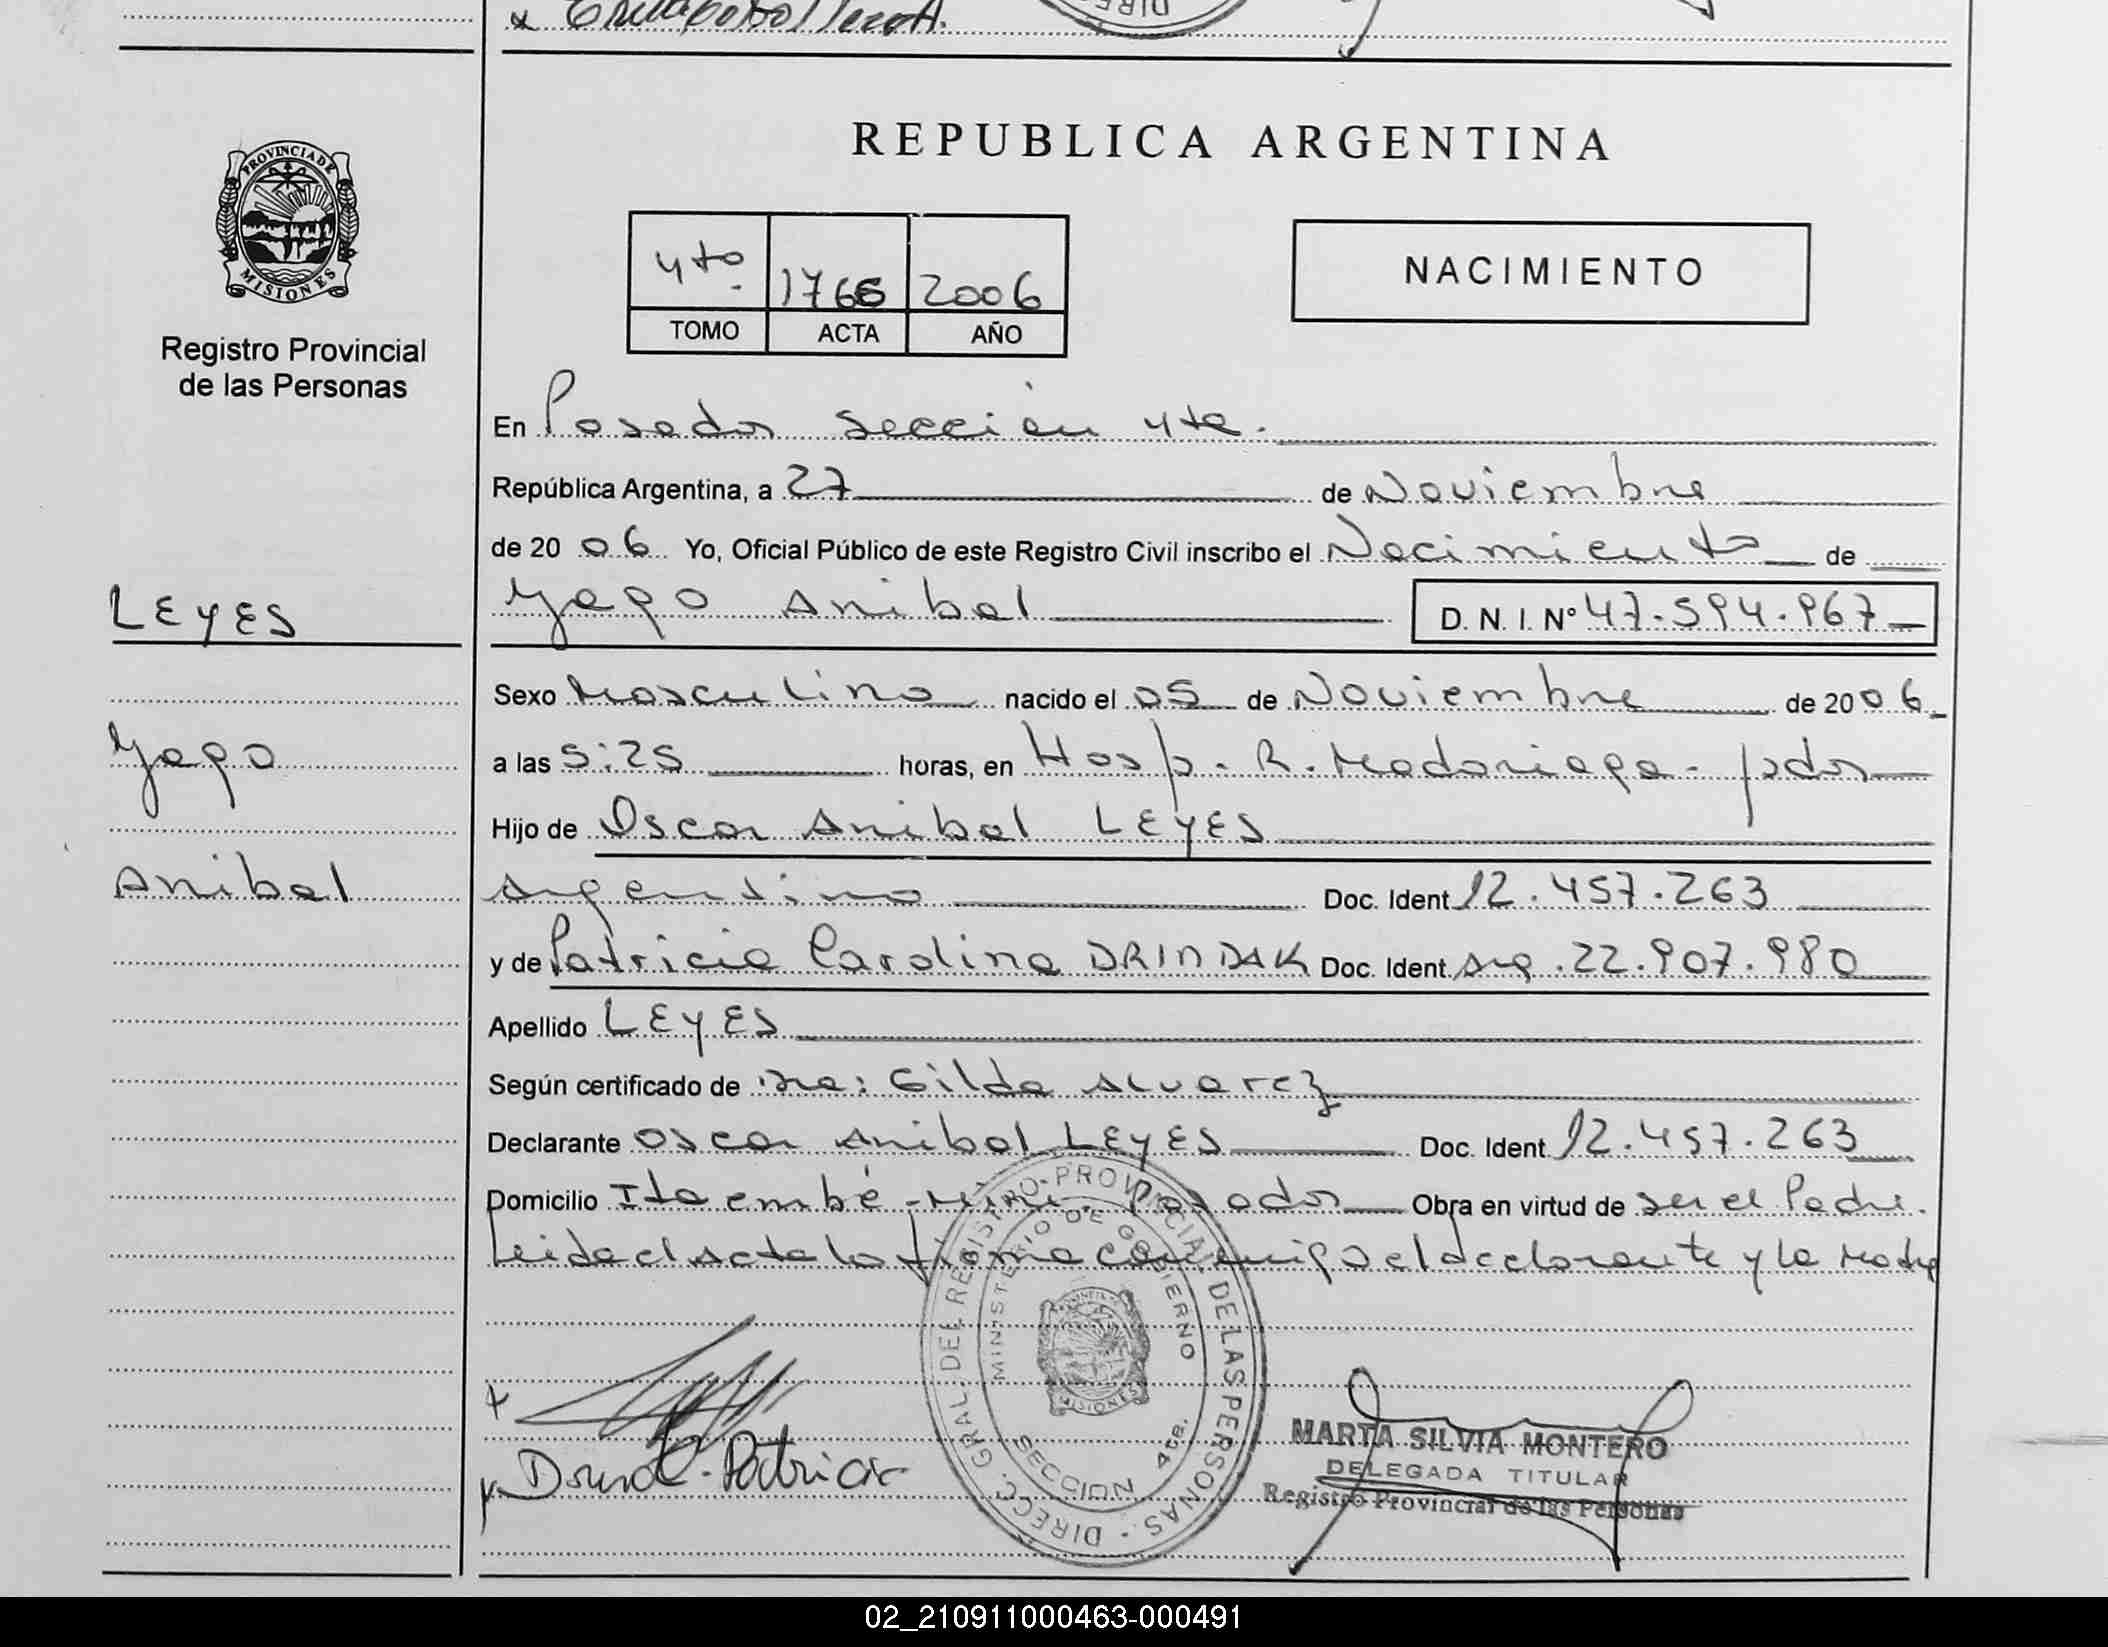 PROVINCIA DE
MISIONES
Registro Provincial
de las Personas
REPUBLICA ARGENTINA
4to. 1766 2006
TOMO ACTA AÑO
NACIMIENTO
En Posadas Sección 4ta.
República Argentina, a 27 de Noviembre
de 20 06 Yo, Oficial Público de este Registro Civil inscribo el Nacimiento de
LEYES
Yago Anibal D. N. I. Nº 47.594.967
Sexo Masculino nacido el 05 de Noviembre de 2006
Yago
a las 5:25 horas, en Hosp. R. Madariaga - pdas
Hijo de Oscar Anibal LEYES
Anibal
Argentino Doc. Ident 12.457.263
y de Patricia Carolina DRINDAK Doc. Ident. Arg. 22.907.980
Apellido LEYES
Según certificado de Dra: Gilda Alvarez
Declarante Oscar Anibal LEYES Doc. Ident 12.457.263
Domicilio Itaembé - Mini - Posadas Obra en virtud de ser el Padre.
Leida el Acta la firma conmigo el declarante y la Madre
DIRECC. GRAL. DEL REGISTRO PROVINCIAL DE LAS PERSONAS.-
MINISTERIO DE GOBIERNO
MISIONES
SECCION 4ta.
Patricia
MARTA SILVIA MONTERO
DELEGADA TITULAR
Registro Provincial de las Personas
02_210911000463-000491